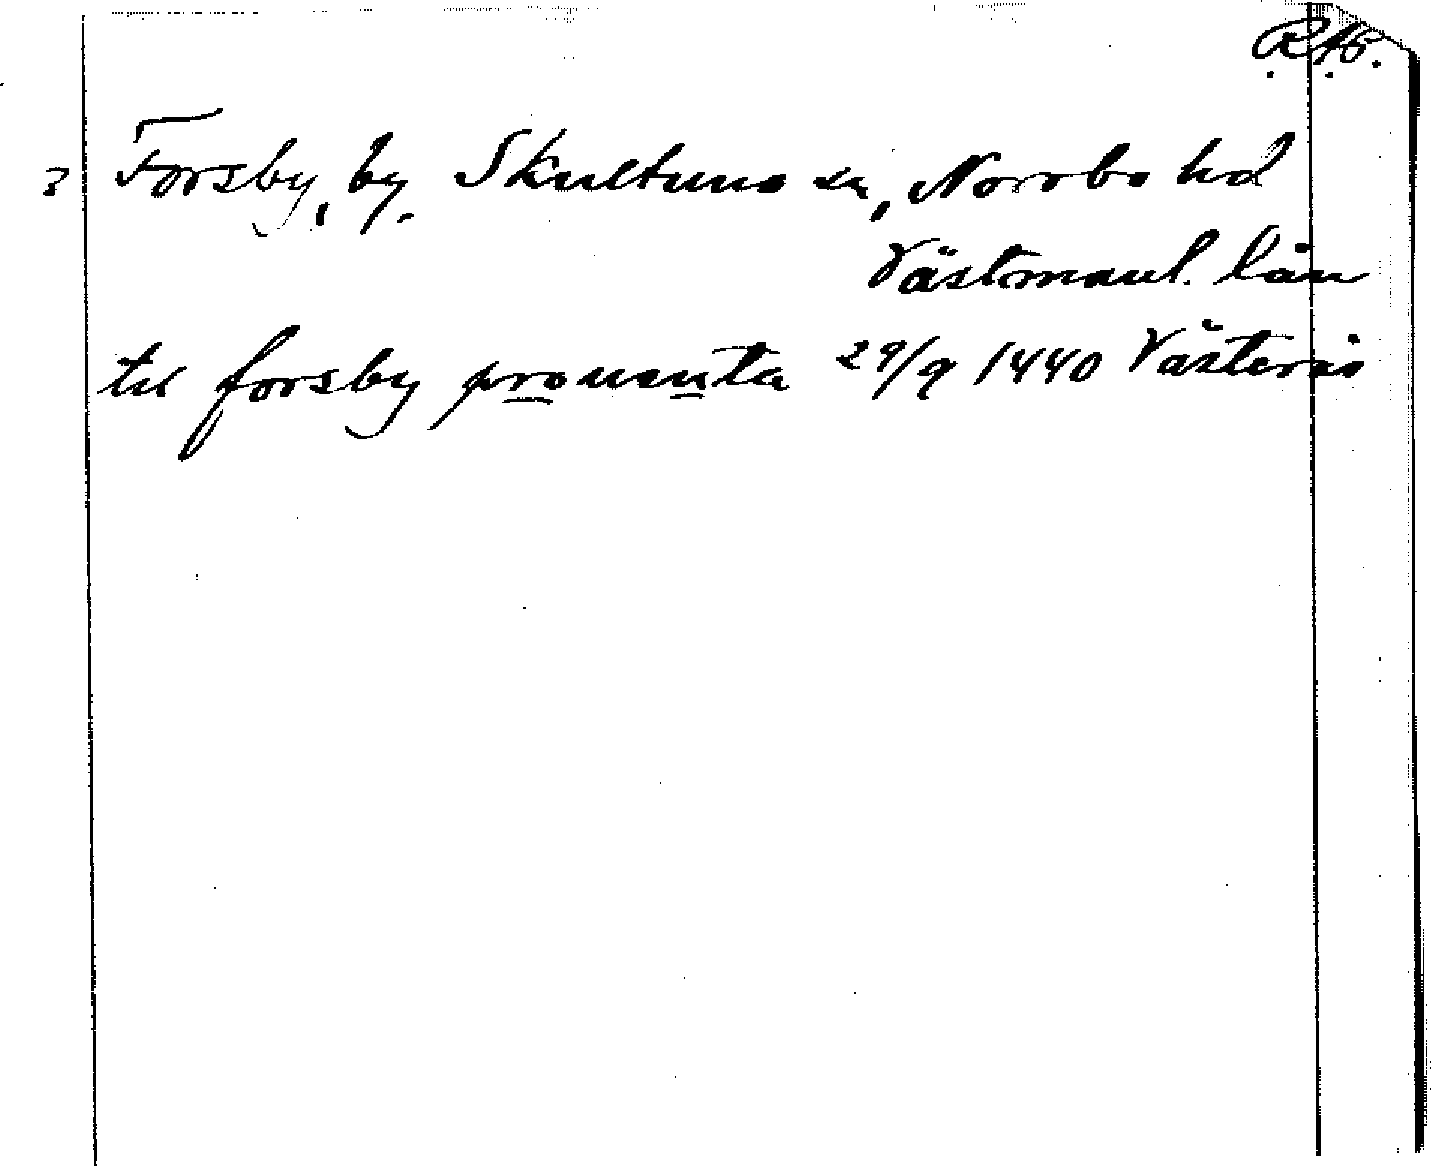 RAp.
? Forsby, by. Skultuna sn, Norrbo hd
Västmanl. län
til forsby prouenta 29/9 1440 Västerås